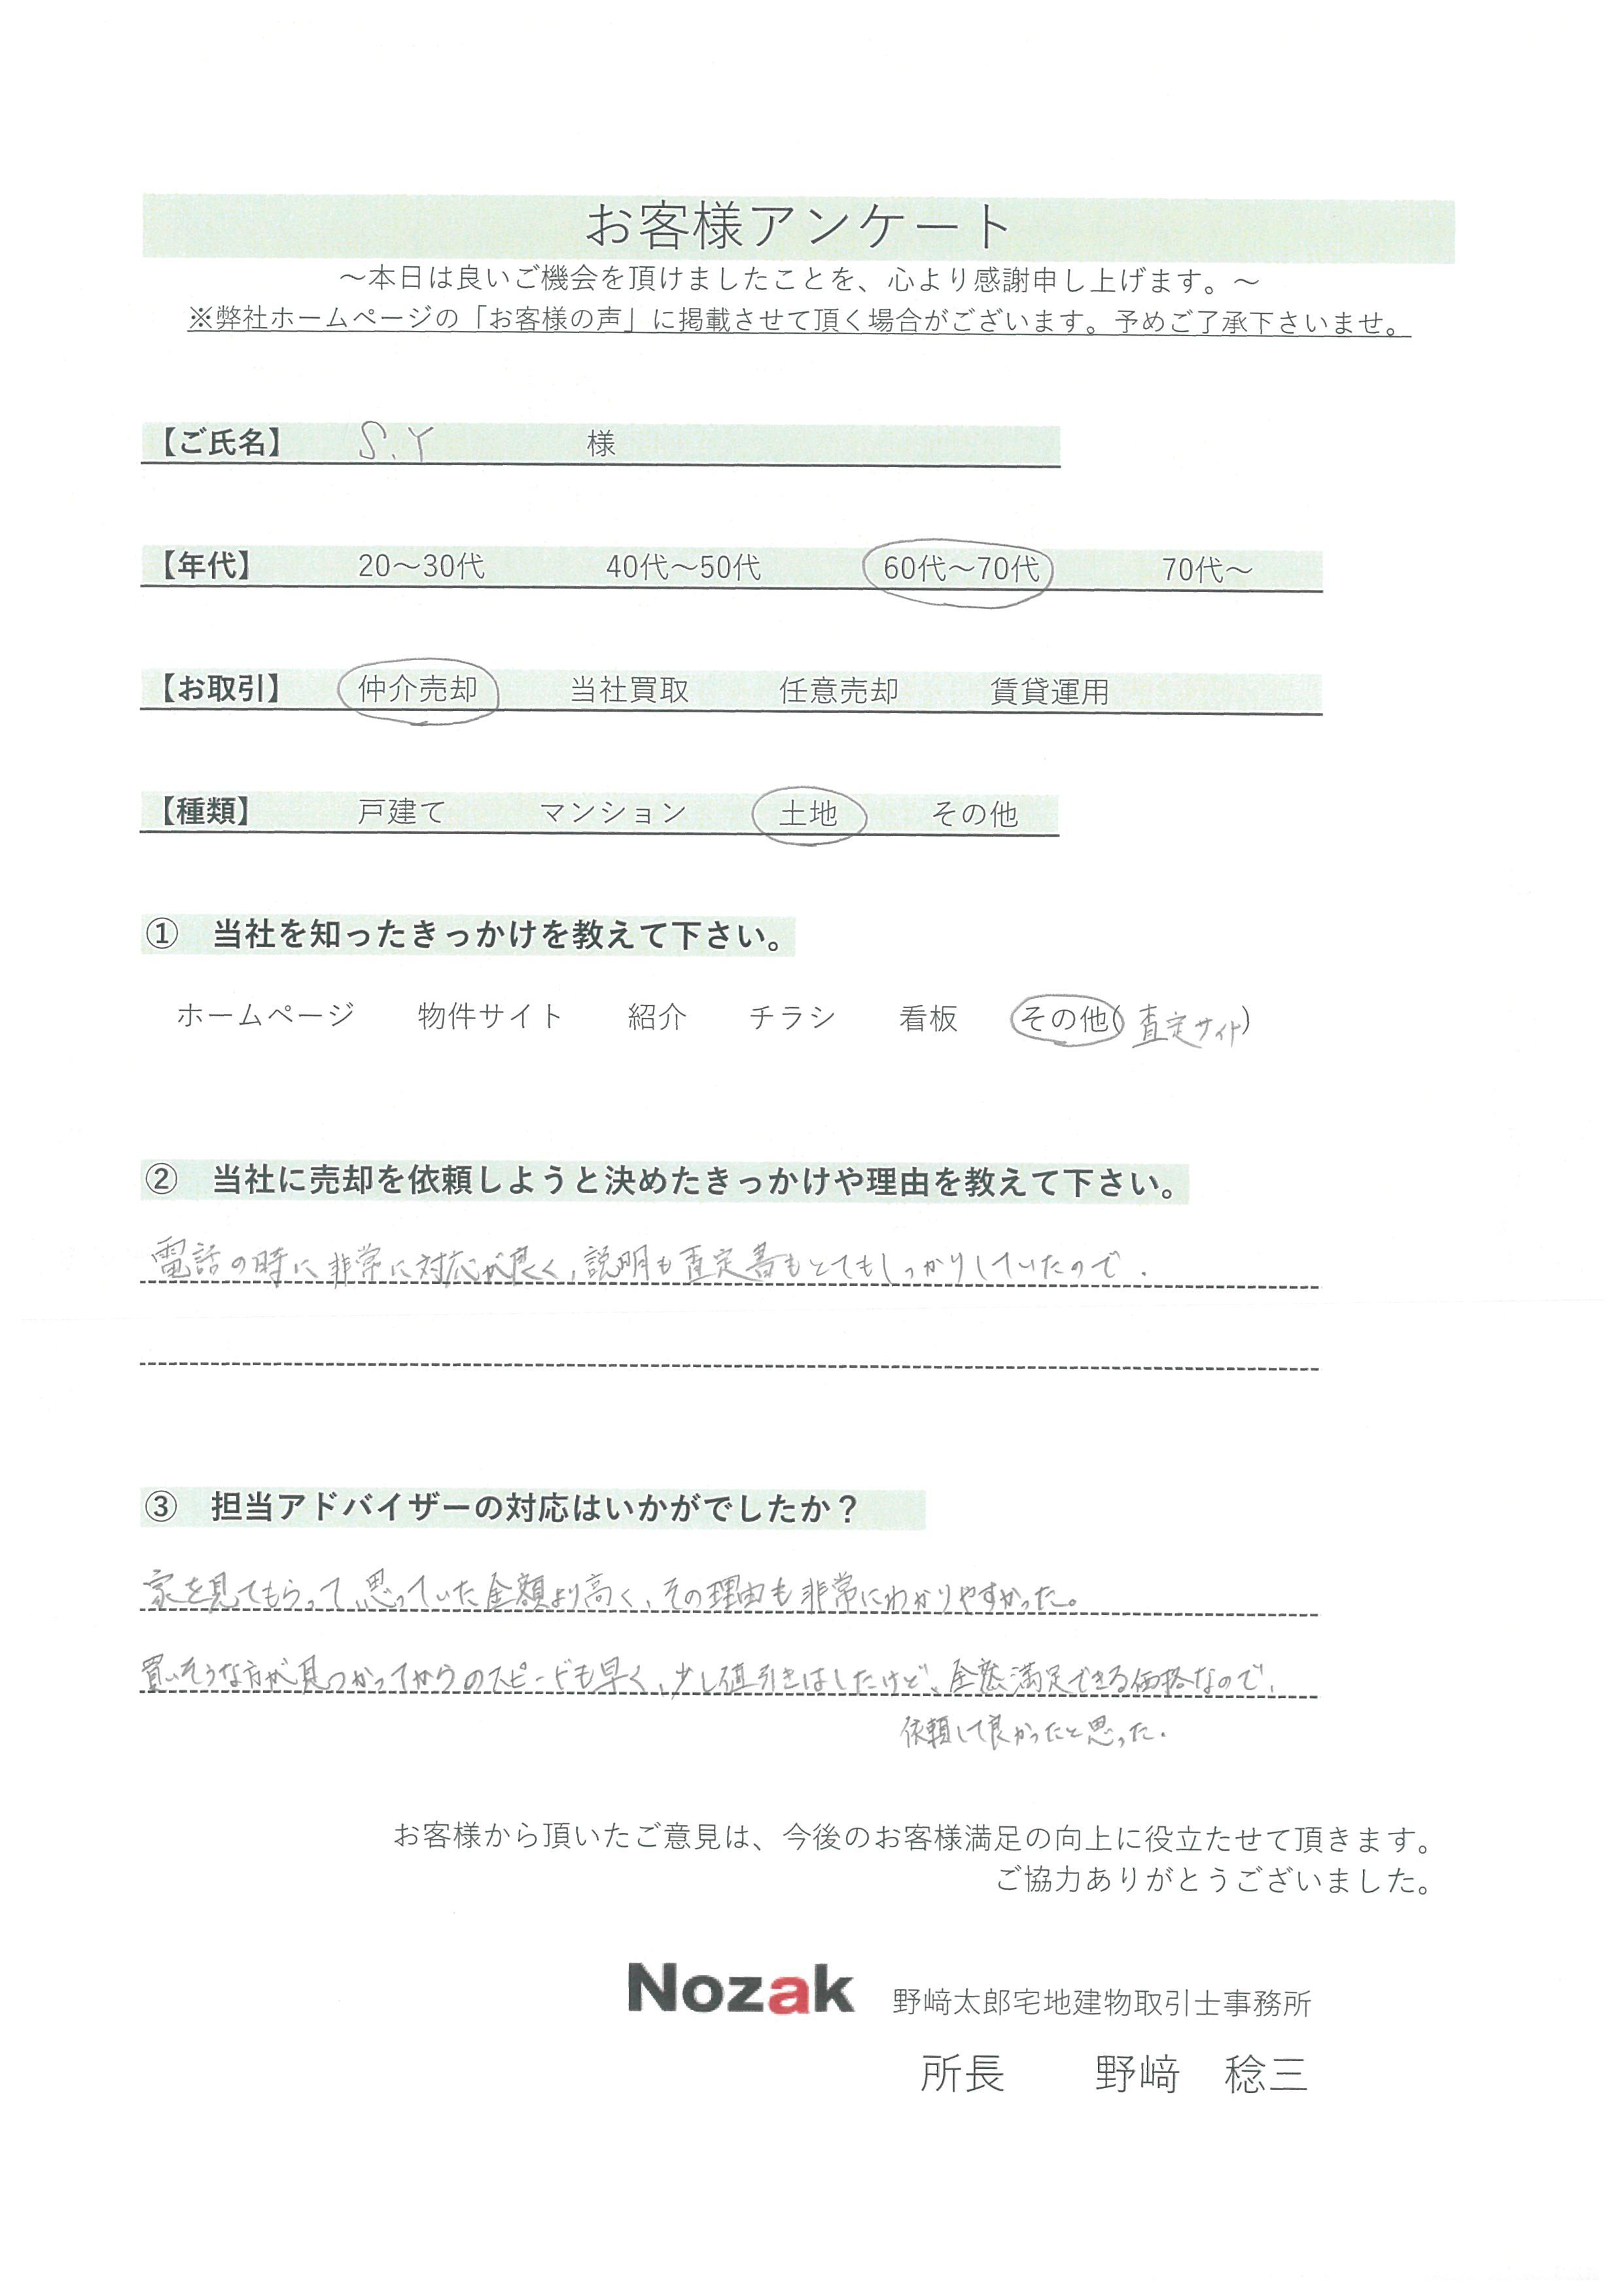 お客様アンケート
～本日は良いご機会を頂けましたことを、心より感謝申し上げます。～
※弊社ホームページの「お客様の声」に掲載させて頂く場合がございます。予めご了承下さいませ。
【ご氏名】 S.Y 様
【年代】 20～30代 40代～50代 60代～70代 70代～
【お取引】 仲介売却 当社買取 任意売却 賃貸運用
【種類】 戸建て マンション 土地 その他
① 当社を知ったきっかけを教えて下さい。
ホームページ 物件サイト 紹介 チラシ 看板 その他(査定サイト)
② 当社に売却を依頼しようと決めたきっかけや理由を教えて下さい。
電話の時に非常に対応が良く、説明も査定書もとてもしっかりしていたので.
③ 担当アドバイザーの対応はいかがでしたか？
家を見てもらって、思っていた金額より高く、その理由も非常にわかりやすかった。
買いそうな方が見つかってからのスピードも早く、少し値引きはしたけど、全然満足できる価格なので、
依頼して良かったと思った.
お客様から頂いたご意見は、今後のお客様満足の向上に役立たせて頂きます。
ご協力ありがとうございました。
Nozak 野﨑太郎宅地建物取引士事務所
所長 野﨑 稔三